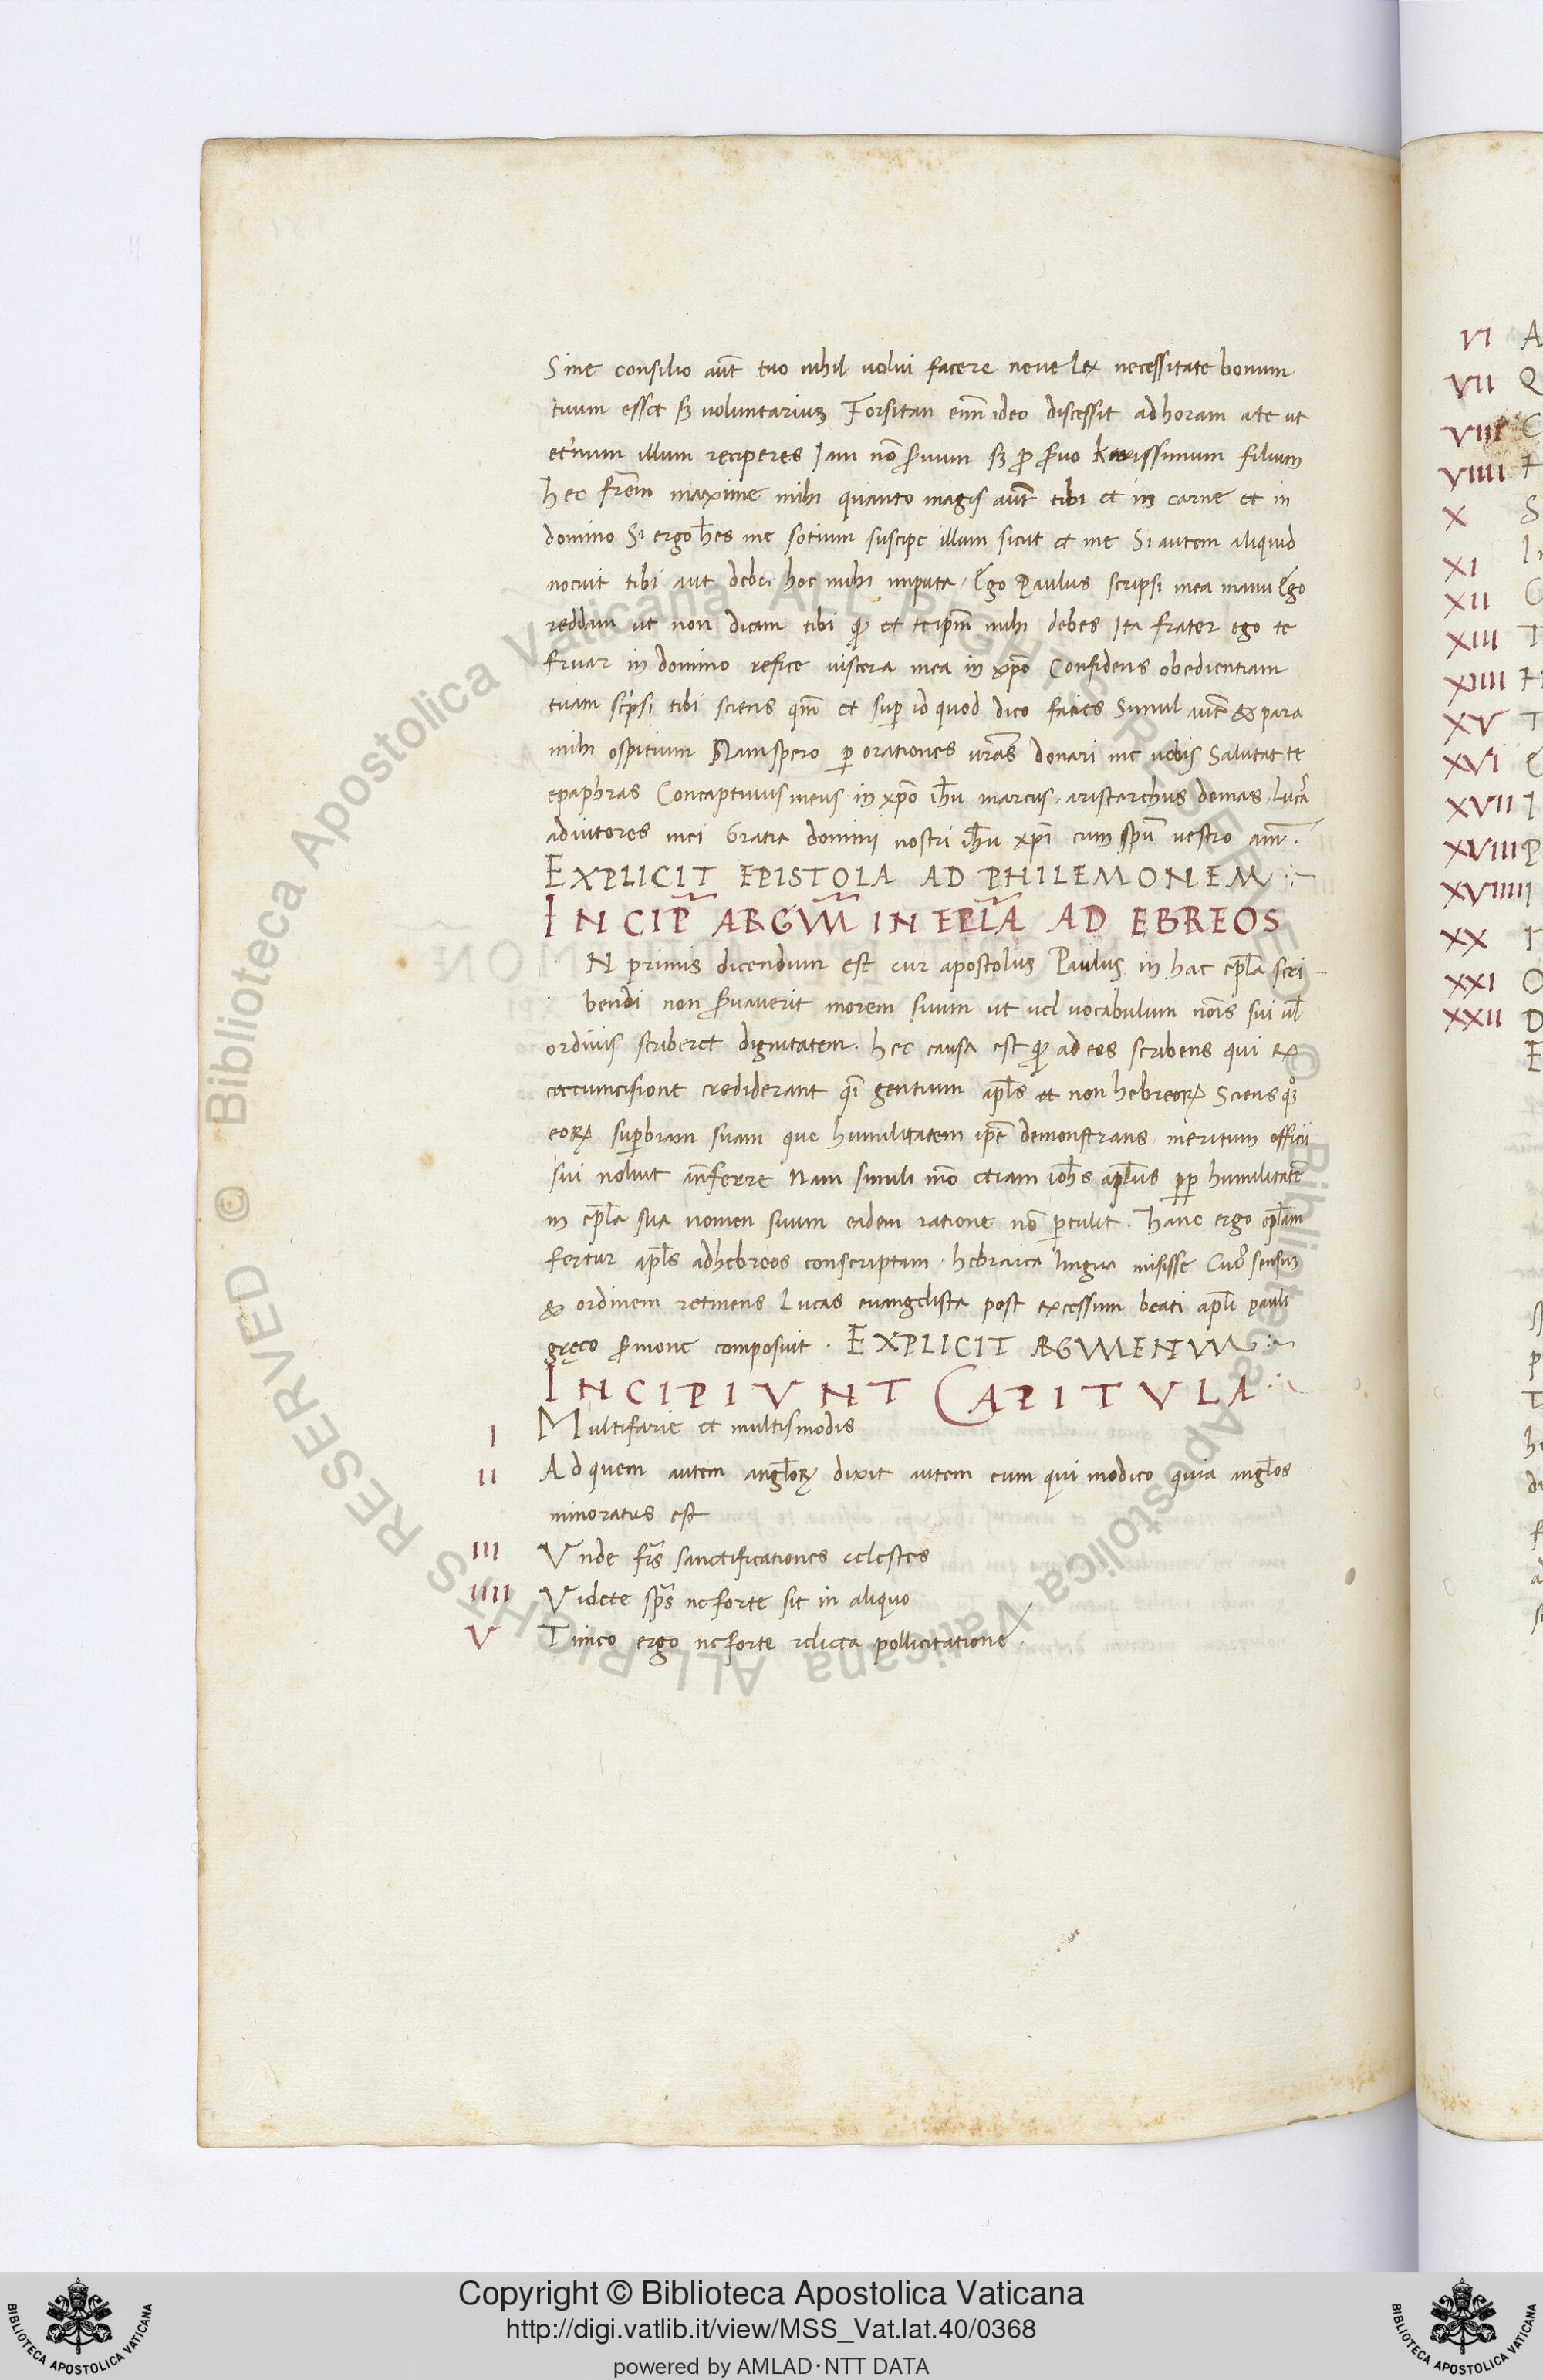 Sine consilio aut̄ tuo nihil uolui facere neuelex necessitate bonum
tuum esset sꝫ uoluntariuꝫ Forsitan eni͞m ideo discessit adhoram ate ut
et͛num illum reciperes Iam nō s͛uum sꝫ ꝓ s͛uo karissimum filium
hec fre͞m maxime mihi quanto magis aut̄ tibi et in carne et in
domino Si ergo h̄es me sotium suscipe illum sicut et me Si autem aliquid
nocuit tibi aut debet hoc mihi imputa. Ego Paulus scripsi mea manu Ego
reddam ut non dicam tibi et teip̄m mihi debes Ita frater ego te
fruar in domino refice uiscera mea in xp̄o Confidens obedientiam
tuam scͥpsi tibi sciens qm̄ et suꝑ id quod dico facies Simul aut̄ & para
mihi ospitium Nam spero ꝑ orationes ur̄as donari me uobis Salutat te
epaphras Concaptiuus meus in xp̄o ih̄u marcus. aristarchus demas. Luca
adiutores mei Gratia domini nostri ih̄u xp̄i cum sp̄u uestro am̄.
EXPLICIT EPISTOLA AD PHILEMONEM
INCIP̄ ARGUM̄ IN EPL̄A AD EBREOS
N primis dicendum est cur apostolus Paulus in hac epl̄a scri-
bendi non s͛uauerit morem suum ut uel uocabulum nōis sui ul̄
ordinis scriberet dignitatem. hec causa est adeos scribens qui ex
circumcisione crediderant qͣi gentium apl̄s et non hebreoꝝ Sciens
eoꝝ suꝑbiam suam que humilitatem ip̄e demonstrans meritum officii
sui noluit an̄ferre Nam simili mo͞ etiam ioh̄s apl̄us ꝓp humilitate͞
in epl̄a sua nomen suum eadem ratione nō ꝑtulit. hanc ergo epl̄am
fertur apl̄s adhebreos conscriptam. hebraica lingua misisse Cuiͥ sensuꝫ
& ordinem retinens Lucas euangelista post excessum beati apl̄i pauli
gręco s͛mone composuit. EXPLICIT ARGUMENTUM
INCIPIVNT CAPITVLA
I Multifarie et multismodis
II Adquem autem angl̄oꝝ dixit autem eum qui modico quia angl̄os
minoratus est
III Vnde fr̄s sanctificationes celestes
IIII Videte fr̄s neforte sit in aliquo
V Timeo ergo neforte relicta pollicitatione
VI A
VII Q
VIII C
VIIII H
X S
XI I
XII C
XIII T
XIIII H
XV T
XVI
XVII I
XVIII P
XVIIII I
XX
XXI O
XXII D
E
Copyright © Biblioteca Apostolica Vaticana
http://digi.vatlib.it/view/MSS_Vat.lat.40/0368
powered by AMLAD·NTT DATA
BIBLIOTECA APOSTOLICA VATICANA
BIBLIOTECA APOSTOLICA VATICANA
© Biblioteca Apostolica Vaticana ALL RIGHTS RESERVED
© Biblioteca Apostolica Vaticana ALL RIGHTS RESERVED